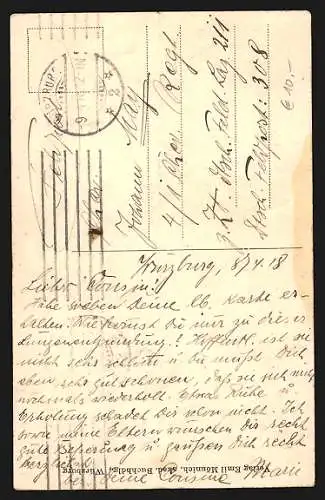 Johann May
4/1 bayer. Regt.
z. Zt. Dtsch. Feld. Laz. 211
Dtsch. Feldpost: 308
€ 10.-
Würzburg, 8/4.18
Lieber Cousin!
Habe soeben Deine lb. Karte er-
halten. Wie kamst Du nur zu dieser
Lungenentzündung? Hoffentl. ist sie
nicht sehr schlimm u. Du mußt Dich
eben sehr gut schonen, daß sie sich nicht
nochmals wiederholt. Etwas Ruhe u.
Erholung schadet Dir schon nicht. Ich
sowie meine Eltern wünschen Dir recht
gute Besserung u. grüßen Dich recht
herzlichst
Deine Cousine Marie
Verlag Emil Mönnich, akad. Buchhdlg., Würzburg